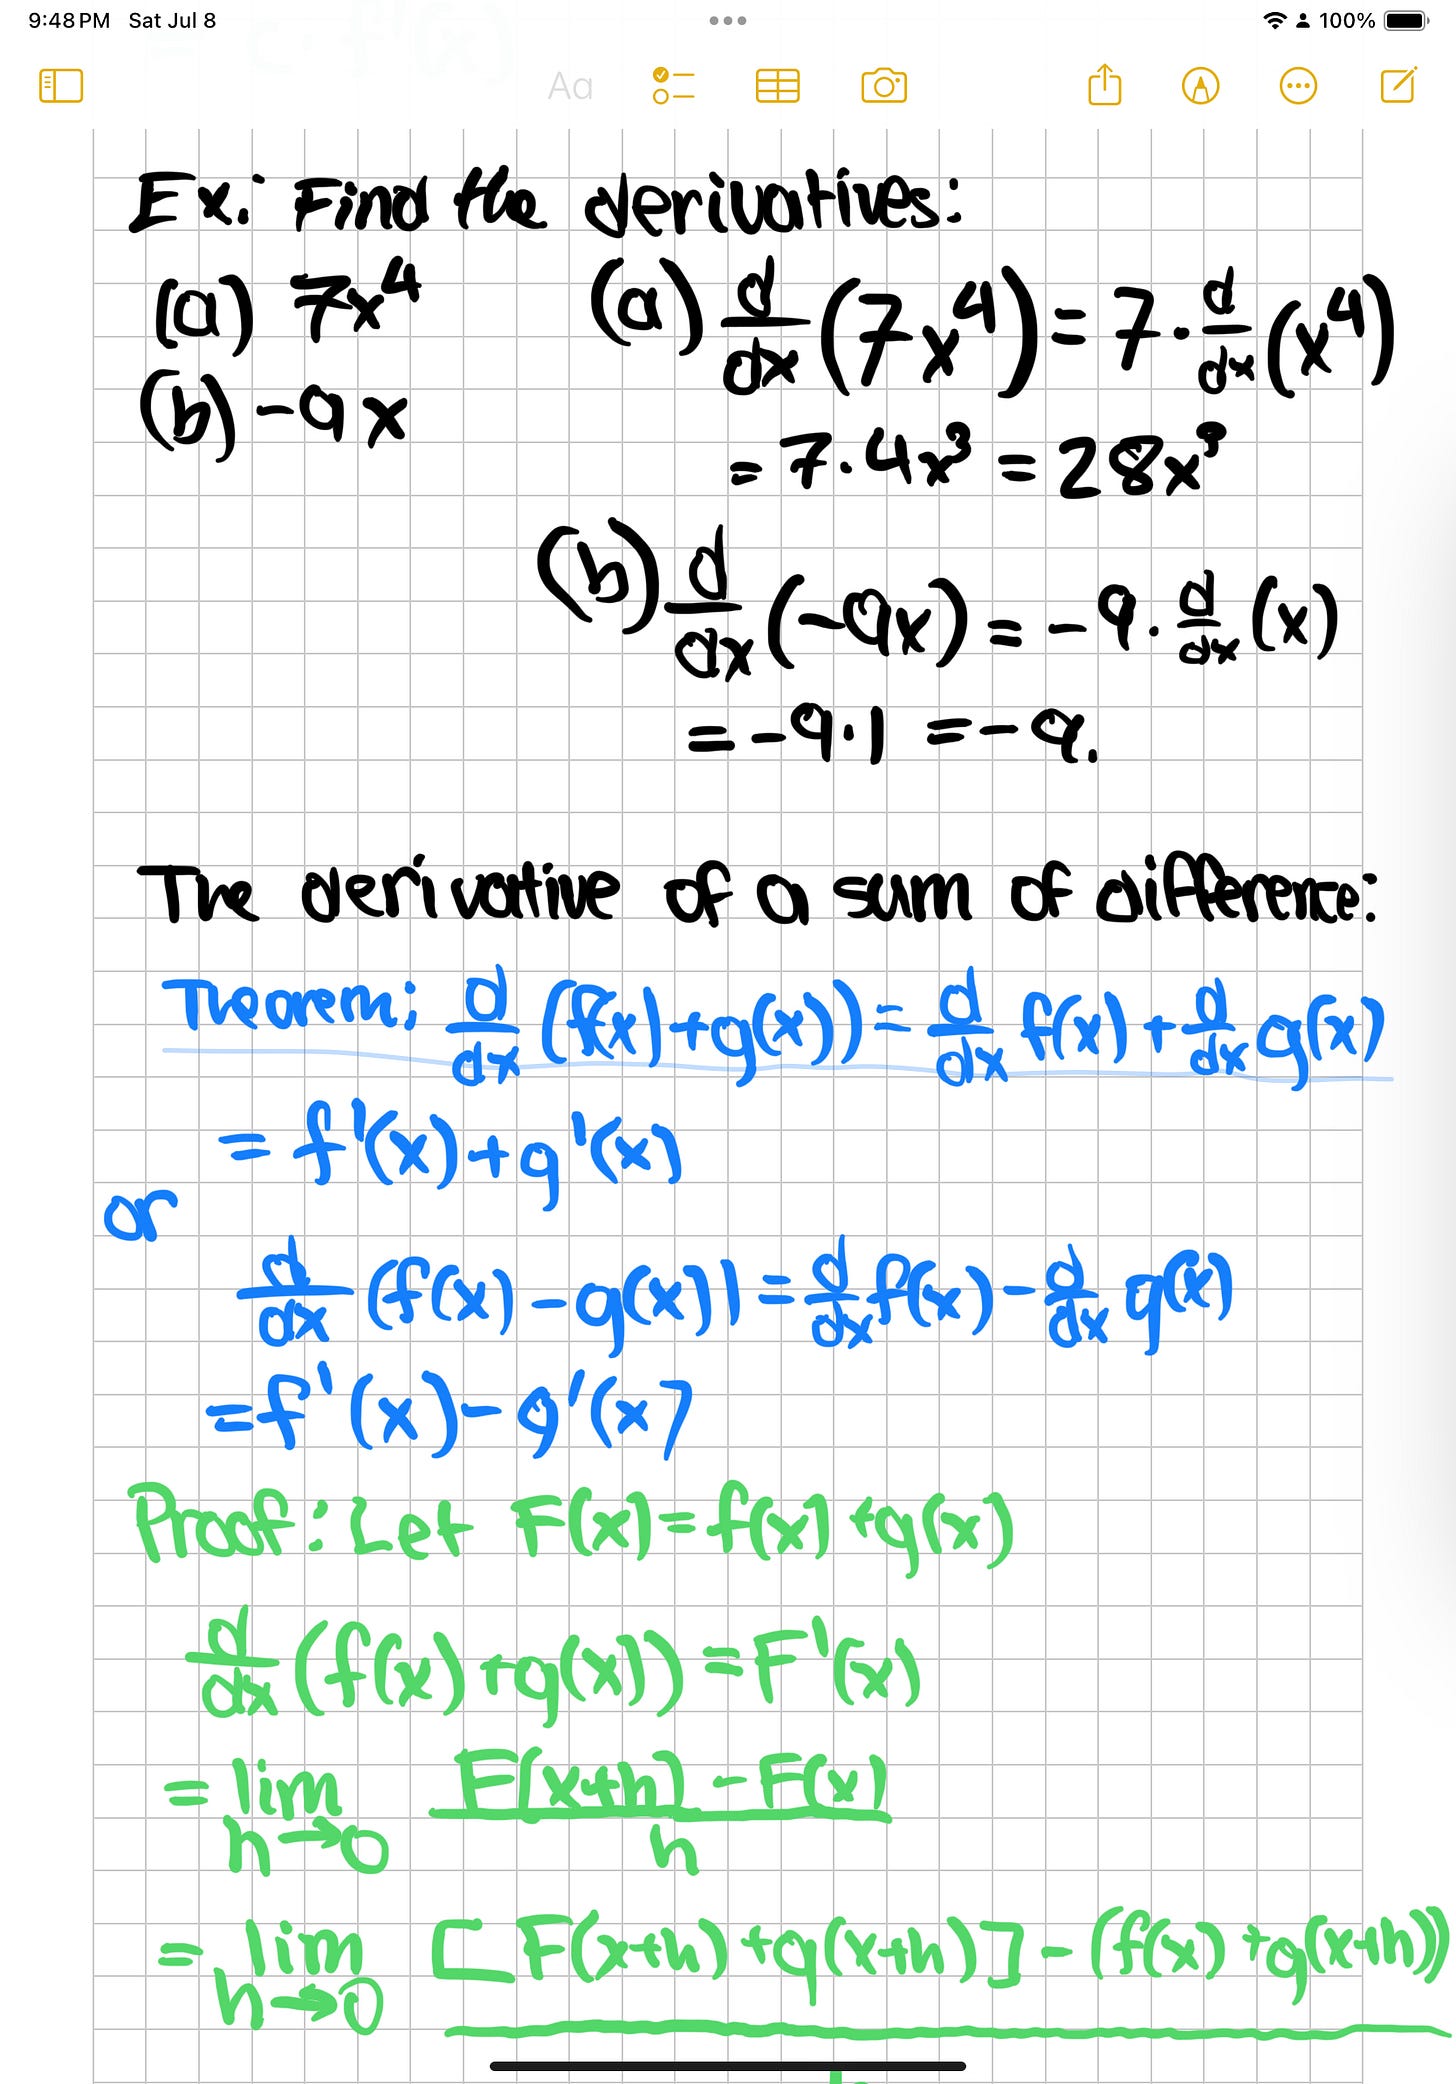 9:48 PM Sat Jul 8 100%
Aa
Ex: Find the derivatives:
(a) 7x⁴
(b) -9x
(a) d/dx (7x⁴) = 7 · d/dx (x⁴)
= 7·4x³ = 28x³
(b) d/dx (-9x) = -9 · d/dx (x)
= -9·1 = -9.
The derivative of a sum of difference:
Theorem: d/dx (f(x)+g(x)) = d/dx f(x) + d/dx g(x)
= f'(x)+g'(x)
or
d/dx (f(x)-g(x)) = d/dx f(x) - d/dx g(x)
= f'(x) - g'(x)
Proof: Let F(x) = f(x)+g(x)
d/dx (f(x)+g(x)) = F'(x)
= lim h→0 F(x+h) - F(x) / h
= lim h→0 [F(x+h)+g(x+h)] - (f(x)+g(x+h))